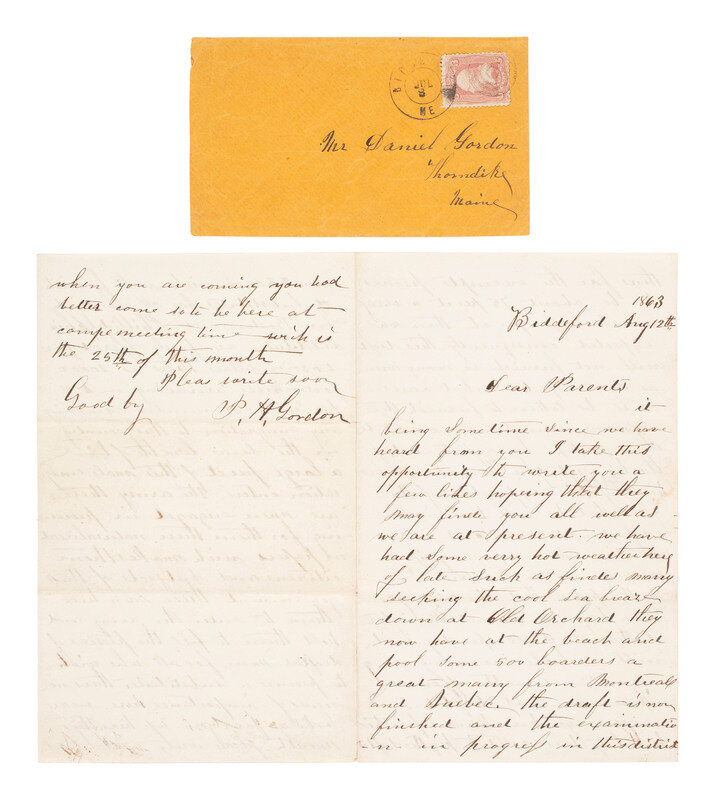 JUL
ME
Mr Daniel Gordon
Thorndike
Maine
when you are coming you had
better come so to be here at
campemeeting time wich is
the 25th of this month
Pleas write soon
Good by P. H. Gordon
1863
Biddeford Aug 12th
Dear Parents
it
being sometime since we have
heard from you I take this
opportunity to write you a
few lines hopeing that they
may finde you all well as
we are at present. we have
had some verry hot weather here
of late such as finds many
seeking the cool sea breaze
down at Old Orchard they
now have at the beach and
pool some 500 boarders a
great many from Montreal
and Quebec. the draft is now
finished and the examinatio
-n in progress in this district